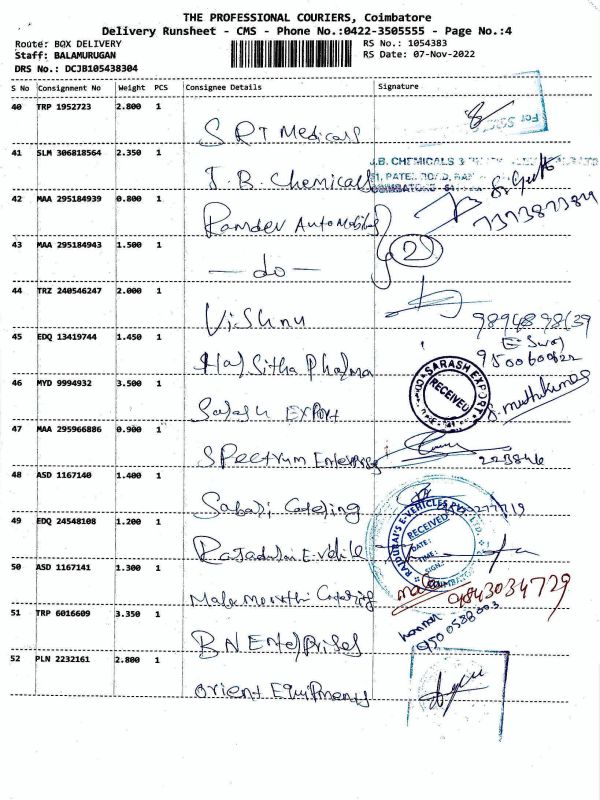 THE PROFESSIONAL COURIERS, Coimbatore
Delivery Runsheet - CMS - Phone No.:0422-3505555 - Page No.:4
Route: BOX DELIVERY
RS No.: 1054383
Staff: BALAMURUGAN
RS Date: 07-Nov-2022
DRS No.: DCJB105438304
S No Consignment No Weight PCS Consignee Details Signature
40 TRP 1952723 2.800 1
For
SRT Medicals
41 SLM 306818564 2.350 1
J.B. CHEMICALS
51, PATEL ROAD,
COIMBATORE
J. B. Chemicals
42 MAA 295184939 0.800 1
7373873789
Ramdev Automobiles
43 MAA 295184943 1.500 1
2
— do —
44 TRZ 240546247 2.000 1
Vishnu
45 EDQ 13419744 1.450 1
9500600822
Harsitha Pharma
46 MYD 9994932 3.500 1
SARASH EXPORT
RECEIVED
J. muthukumar
Sarash Export
47 MAA 295966886 0.900 1
223846
Spectrum Enterprises
48 ASD 1167140 1.400 1
Sabari Catering
49 EDQ 24548108 1.200 1
RAJDURAI'S E-VEHICLES PVT. LTD.
RECEIVED
DATE:
TIME:
SIGN:
COIMBATORE
Rajadurai E-vehile
50 ASD 1167141 1.300 1
mala
9843034729
Malamaruthi Catering
51 TRP 6016609 3.350 1
hannah
9500538003
B.N Enterprises
52 PLN 2232161 2.800 1
Orient Equipments